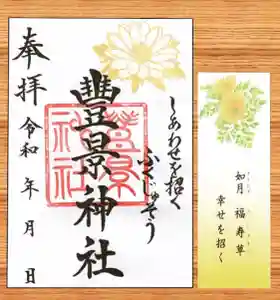 奉拝
しあわせを招く
ふくじゅそう
豐景神社
豊景神社
令和　年　月　日
如月　福寿草
幸せを招く